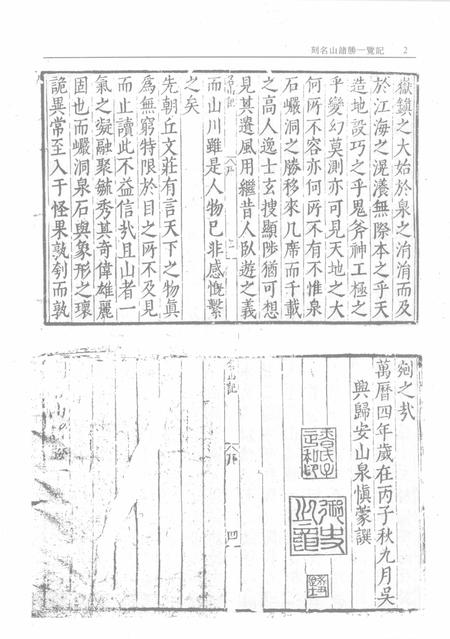 刻名山諸勝一覽記 2
嶽鎮之大始於泉之涓涓而及
於江海之混瀁無際本之乎天
造地設巧之乎鬼斧神工極之
乎變幻莫測亦可見天地之大
何所不容亦何所不有不惟泉
石巖洞之勝移來几席而千載
之高人逸士玄搜顯陟猶可想
見其遺風用繼昔人臥遊之義
名山記
而山川雖是人物已非感慨繫
之矣
先朝丘文莊有言天下之物真
爲無窮特限於目之所不及見
而止讀此不益信㢤且山者一
氣之凝融聚毓秀其奇偉雄麗
固也而巖洞泉石與象形之瓌
詭異常至入于怪果孰刳而孰
剜之㢤
萬曆四年歲在丙子秋九月吳
興歸安山泉慎蒙譔
山記 四